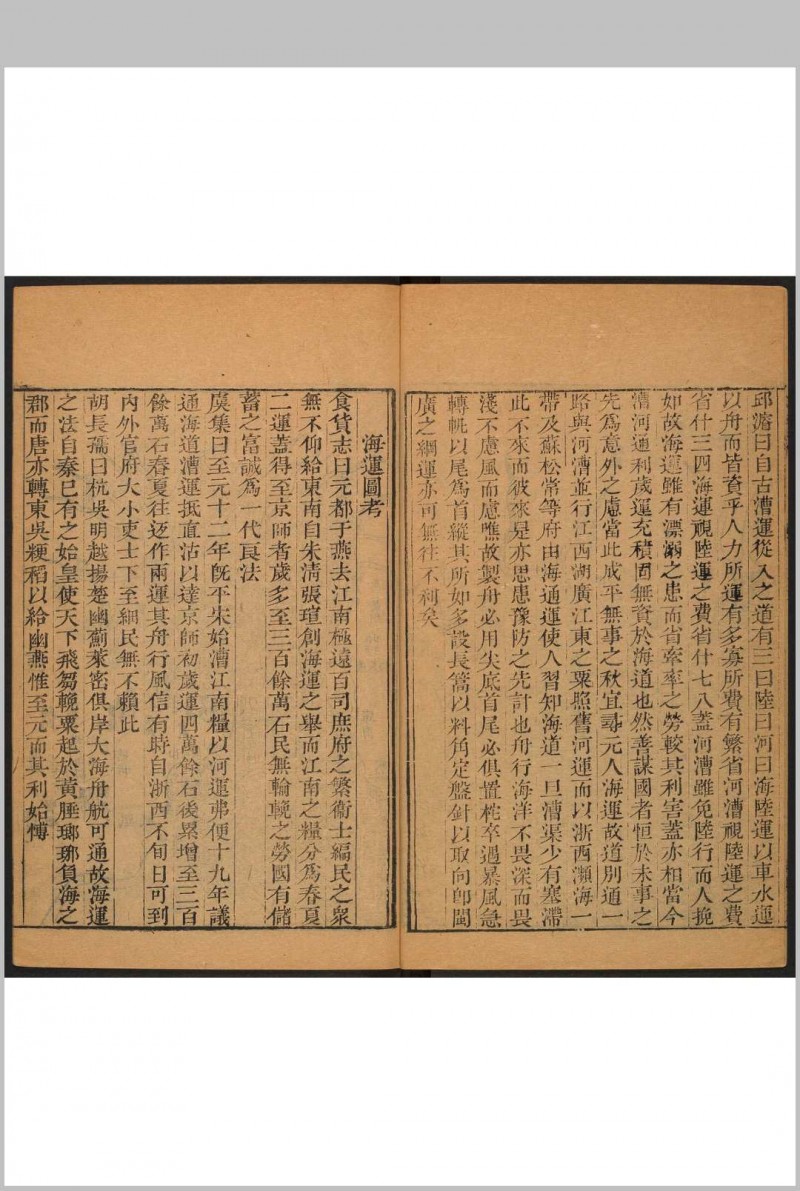 邱濬曰自古漕運從入之道有三曰陸曰河曰海陸運以車水運
以舟而皆資乎人力所運有多寡所費有繁省河漕視陸運之費
省什三四海運視陸運之費省什七八蓋河漕雖免陸行而人挽
如故海運雖有漂溺之患而省牽率之勞較其利害蓋亦相當今
漕河通利歲運充積固無資於海道也然善謀國者恒於未事之
先為意外之慮當此成平無事之秋宜尋元人海運故道別通一
路與河漕並行江西湖廣江東之粟照舊河運而以浙西瀕海一
帶及蘇松常等府由海通運使人習知海道一旦漕渠少有塞滯
此不來而彼來是亦思患豫防之先計也舟行海洋不畏深而畏
淺不慮風而慮礁故製舟必用尖底首尾必俱置柁卒遇暴風急
轉帆以尾為首縱其所如多設長篙以料角定盤針以取向即閩
廣之綱運亦可無往不利矣
海運圖考
食貨志曰元都于燕去江南極遠百司庶府之繁衛士編民之衆
無不仰給東南自朱清張瑄創海運之舉而江南之糧分為春夏
二運蓋得至京師者歲多至三百餘萬石民無輸輓之勞國有儲
蓄之富誠為一代良法
虞集曰至元十二年旣平宋始漕江南糧以河運弗便十九年議
通海道漕運抵直沽以達京師初歲運四萬餘石後累增至三百
餘萬石春夏往返作兩運其舟行風信有時自浙西不旬日可到
內外官府大小吏士下至細民無不賴此
胡長孺曰杭吳明越揚楚幽薊萊密俱岸大海舟航可通故海運
之法自秦已有之始皇使天下飛芻輓粟起於黃腄瑯琊負海之
郡而唐亦轉東吳粳稻以給幽燕惟至元而其利始博